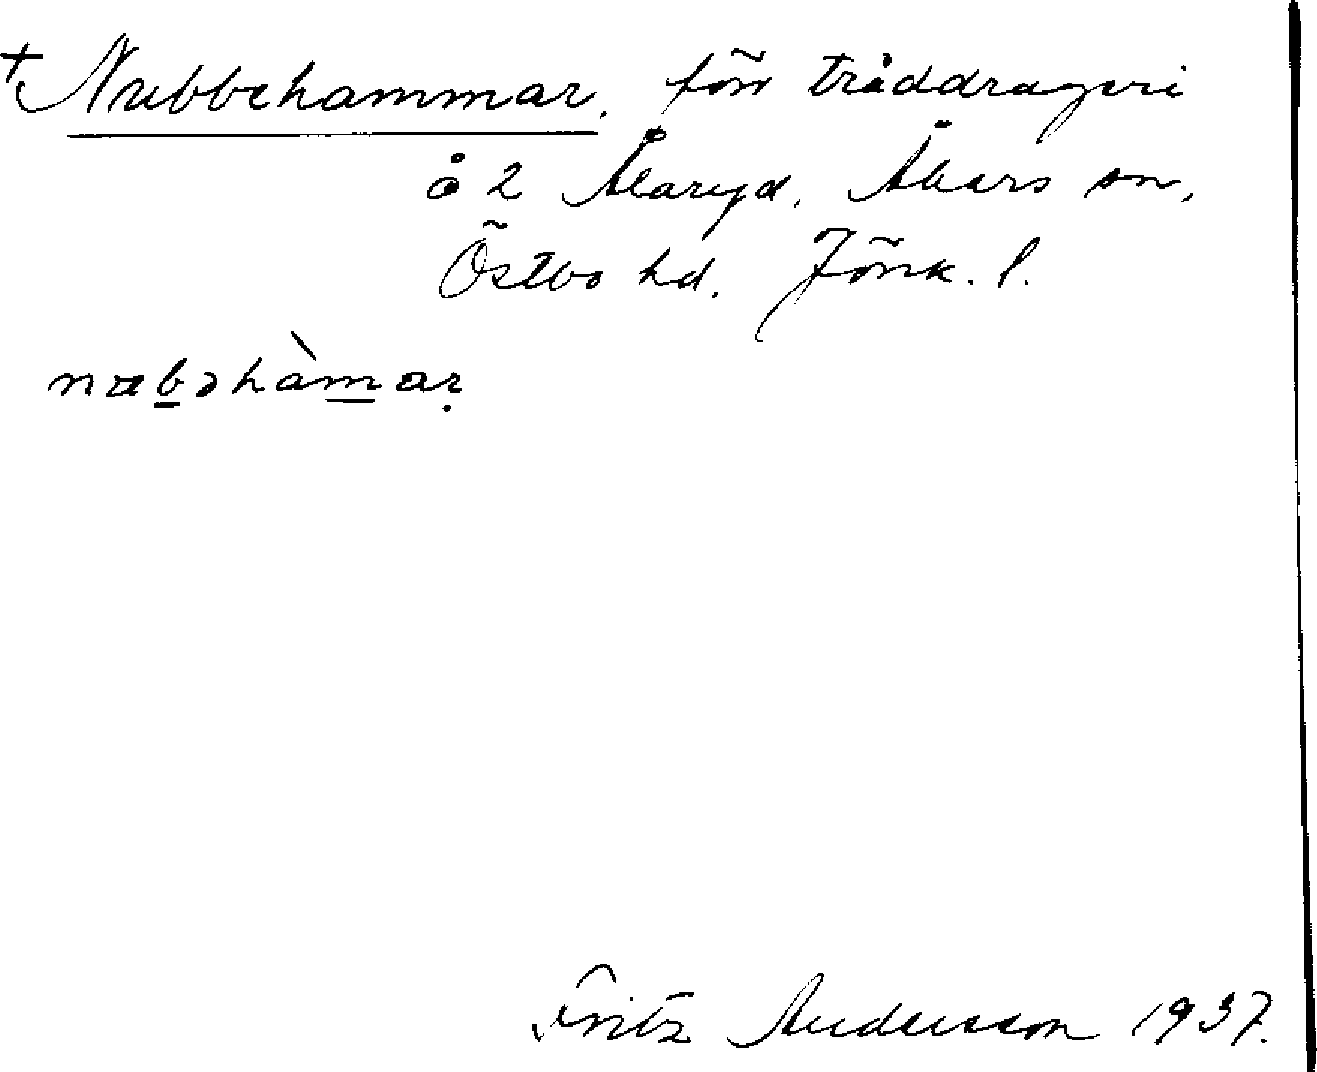 + Nubbehammar. förr tråddrageri
å 2 Ålaryd, Åkers sn,
Östbo hd. Jönk. l.
nubəhàmar
Fritz Andersson 1937.